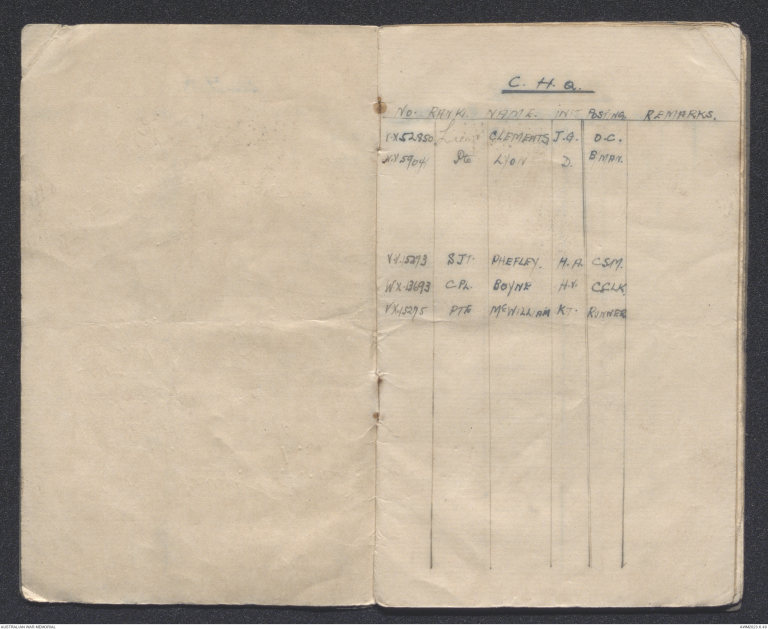 C. H. Q.
No. RANK. NAME. INIT POSTING REMARKS.
VX52950 Lieut CLEMENTS J.G. O.C.
Pte LYON D. BMAN.
VX15273 SJT. PHEFLEY. H.A. C.S.M.
WX13693 CPL. BOYNE H.V. C CLK
VX15275 PTE McWILLIAM K.T. RUNNER
AUSTRALIAN WAR MEMORIAL